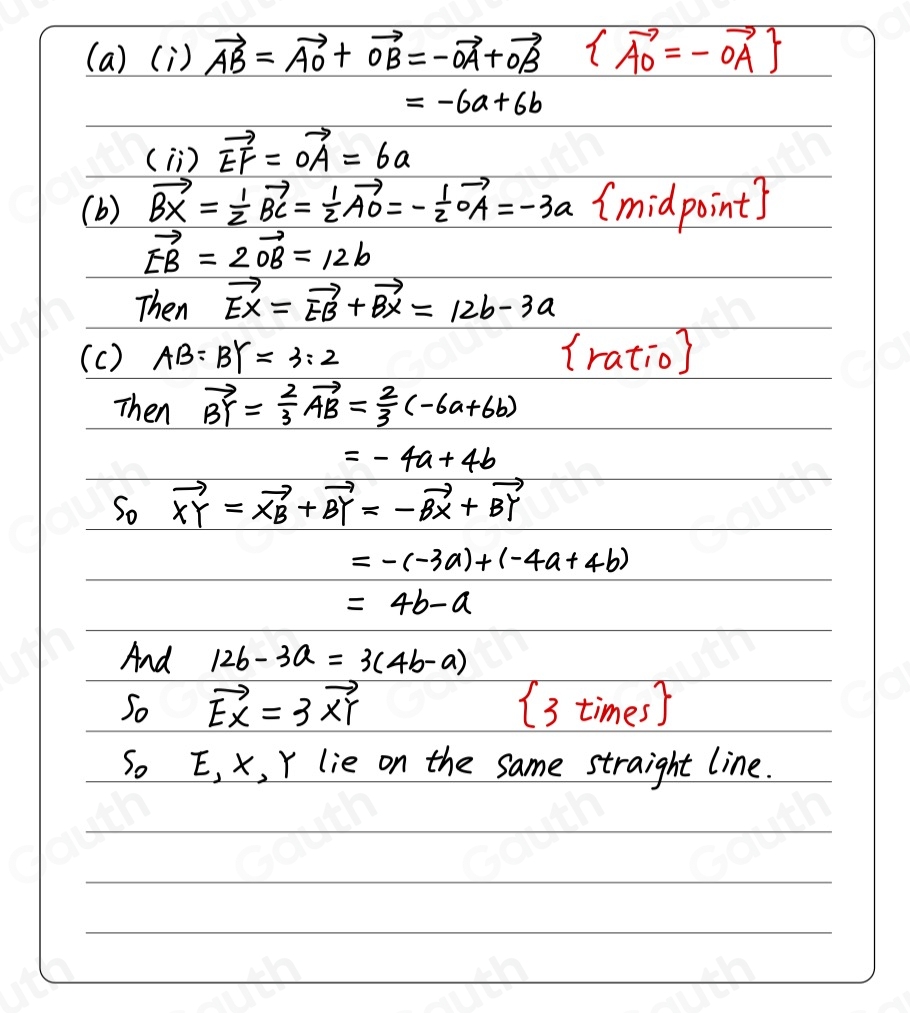 (a) (i) $\overrightarrow{AB} = \overrightarrow{AO} + \overrightarrow{OB} = -\overrightarrow{OA} + \overrightarrow{OB}$ {$\overrightarrow{AO} = -\overrightarrow{OA}$}
= -6a+6b
(ii) $\overrightarrow{EF} = \overrightarrow{OA} = 6a$
(b) $\overrightarrow{BX} = \frac{1}{2}\overrightarrow{BC} = \frac{1}{2}\overrightarrow{AO} = -\frac{1}{2}\overrightarrow{OA} = -3a$ {midpoint}
$\overrightarrow{EB} = 2\overrightarrow{OB} = 12b$
Then $\overrightarrow{EX} = \overrightarrow{EB} + \overrightarrow{BX} = 12b-3a$
(c) AB:BY = 3:2 {ratio}
Then $\overrightarrow{BY} = \frac{2}{3}\overrightarrow{AB} = \frac{2}{3}(-6a+6b)$
= -4a+4b
So $\overrightarrow{XY} = \overrightarrow{XB} + \overrightarrow{BY} = -\overrightarrow{BX} + \overrightarrow{BY}$
= -(-3a)+(-4a+4b)
= 4b-a
And 12b-3a = 3(4b-a)
So $\overrightarrow{EX} = 3\overrightarrow{XY}$ {3 times}
So E, X, Y lie on the same straight line.